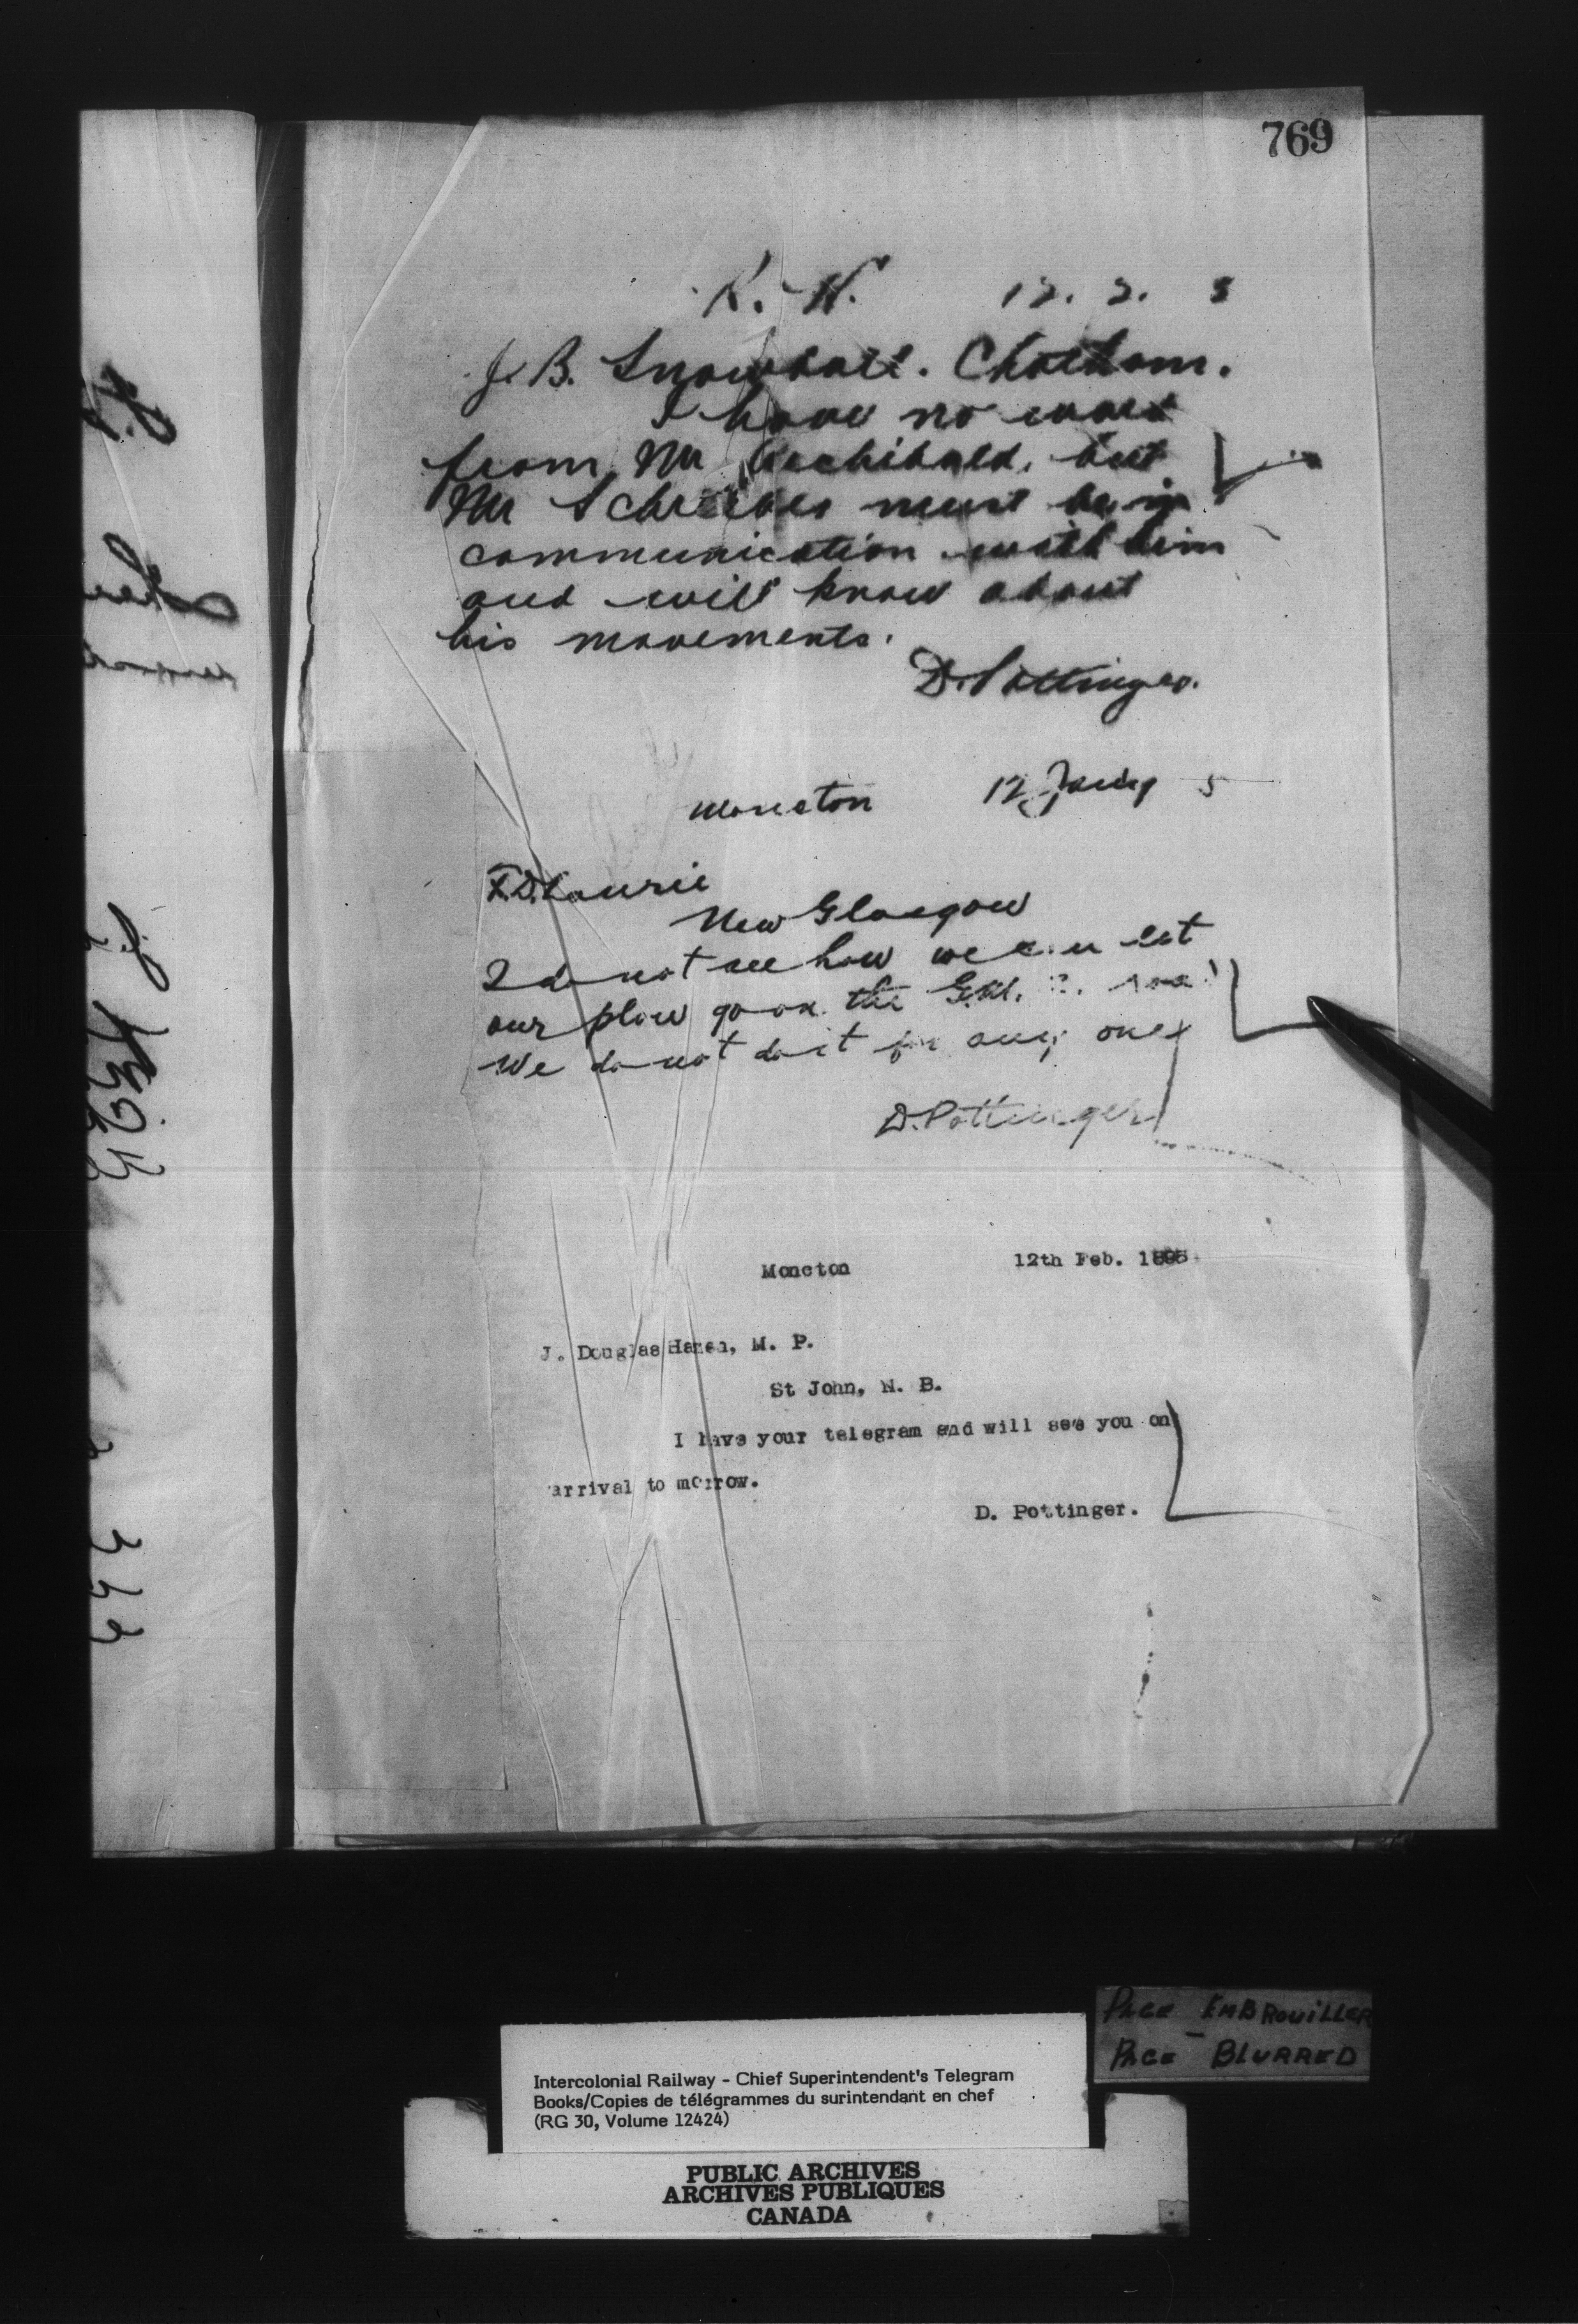 769
12. 2. 5
J. B. Snowball. Chatham.
I have no word
from Mr Archibald, but
Mr Schreiber must be in
communication with him
and will know about
his movements.
D. Pottinger.
Moncton 12 5
Laurie
New Glasgow
I do not see how we can let
our plow go on the
We do not do it for any one
D. Pottinger
Moncton 12th Feb. 1895
J. Douglas Hazen, M. P.
St John, N. B.
I have your telegram and will see you on
arrival to morrow.
D. Pottinger.
PAGE EMBROUILLER
PAGE BLURRED
Intercolonial Railway - Chief Superintendent's Telegram
Books/Copies de télégrammes du surintendant en chef
(RG 30, Volume 12424)
PUBLIC ARCHIVES
ARCHIVES PUBLIQUES
CANADA